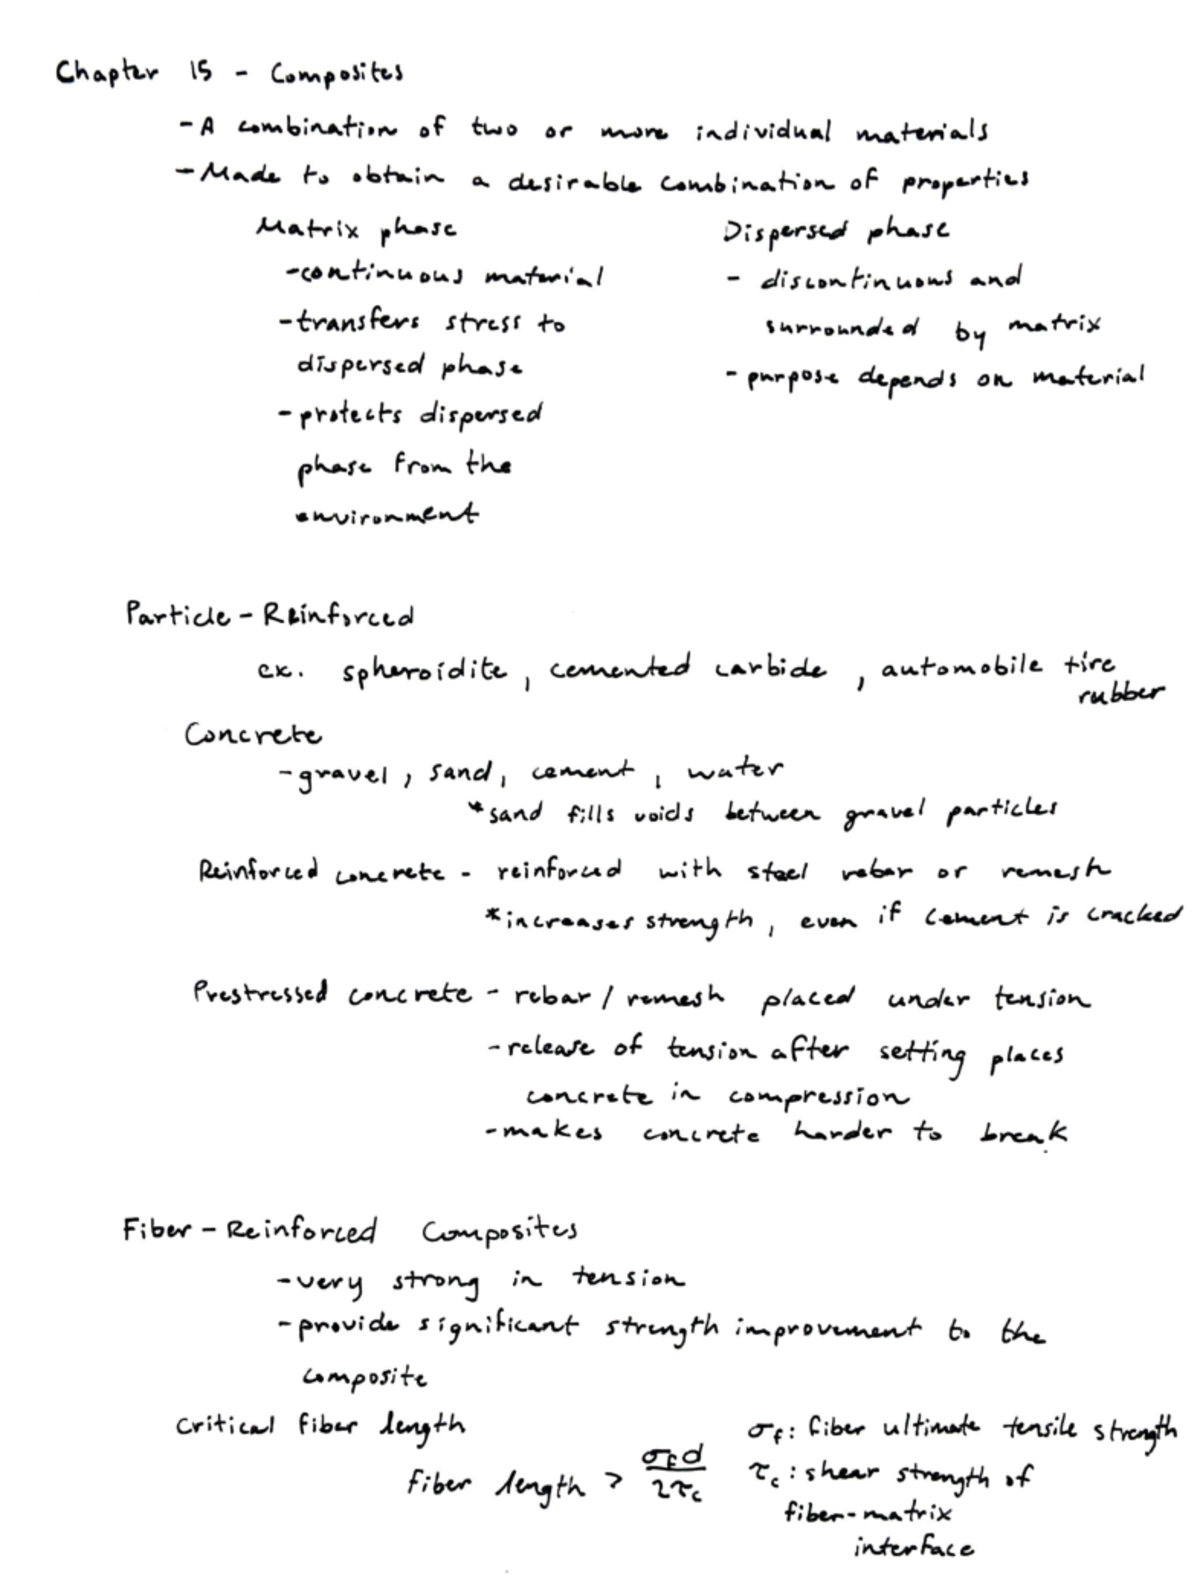 Chapter 15 - Composites
- A combination of two or more individual materials
- Made to obtain a desirable combination of properties
Matrix phase
- continuous material
- transfers stress to
dispersed phase
- protects dispersed
phase from the
environment
Dispersed phase
- discontinuous and
surrounded by matrix
- purpose depends on material
Particle - Reinforced
ex. spheroidite, cemented carbide, automobile tire
rubber
Concrete
- gravel, sand, cement, water
*sand fills voids between gravel particles
Reinforced concrete - reinforced with steel rebar or remesh
*increases strength, even if cement is cracked
Prestressed concrete - rebar / remesh placed under tension
- release of tension after setting places
concrete in compression
- makes concrete harder to break
Fiber - Reinforced Composites
- very strong in tension
- provide significant strength improvement to the
composite
Critical fiber length
fiber length > σfd / 2τc
σf: fiber ultimate tensile strength
τc: shear strength of
fiber-matrix
interface